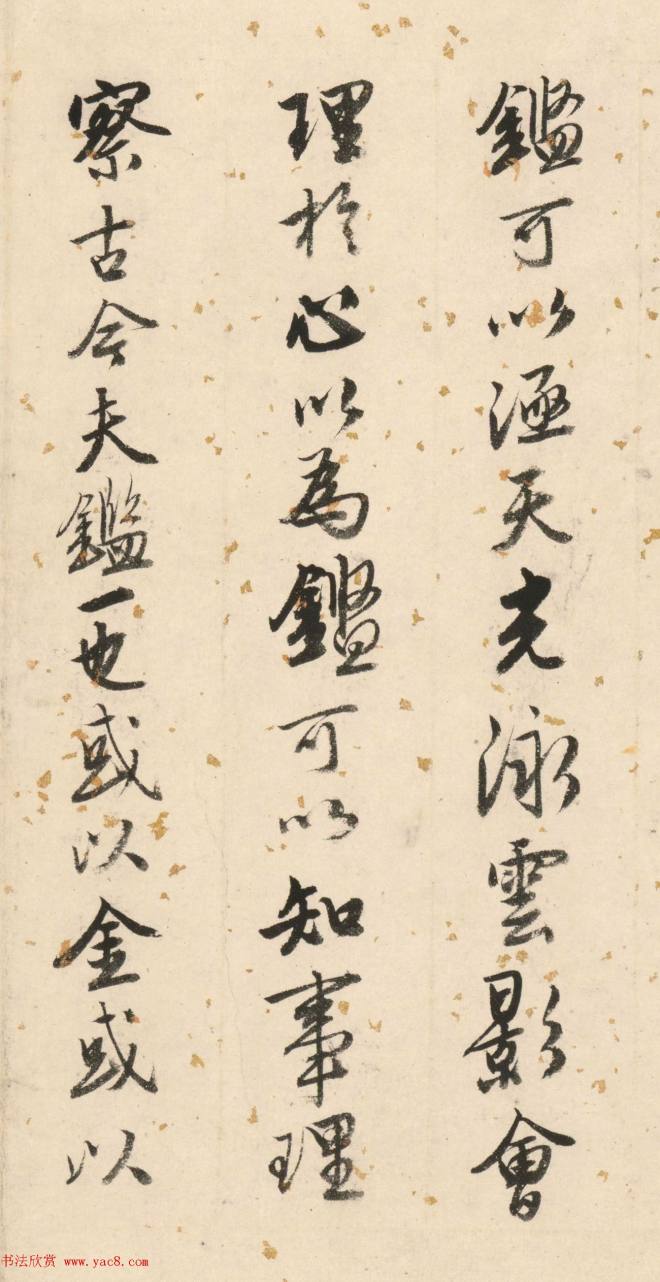 鑑可以涵天光泳雲影會
理於心以為鑑可以知事理
察古今夫鑑一也或以金或以
书法欣赏 www.yac8.com